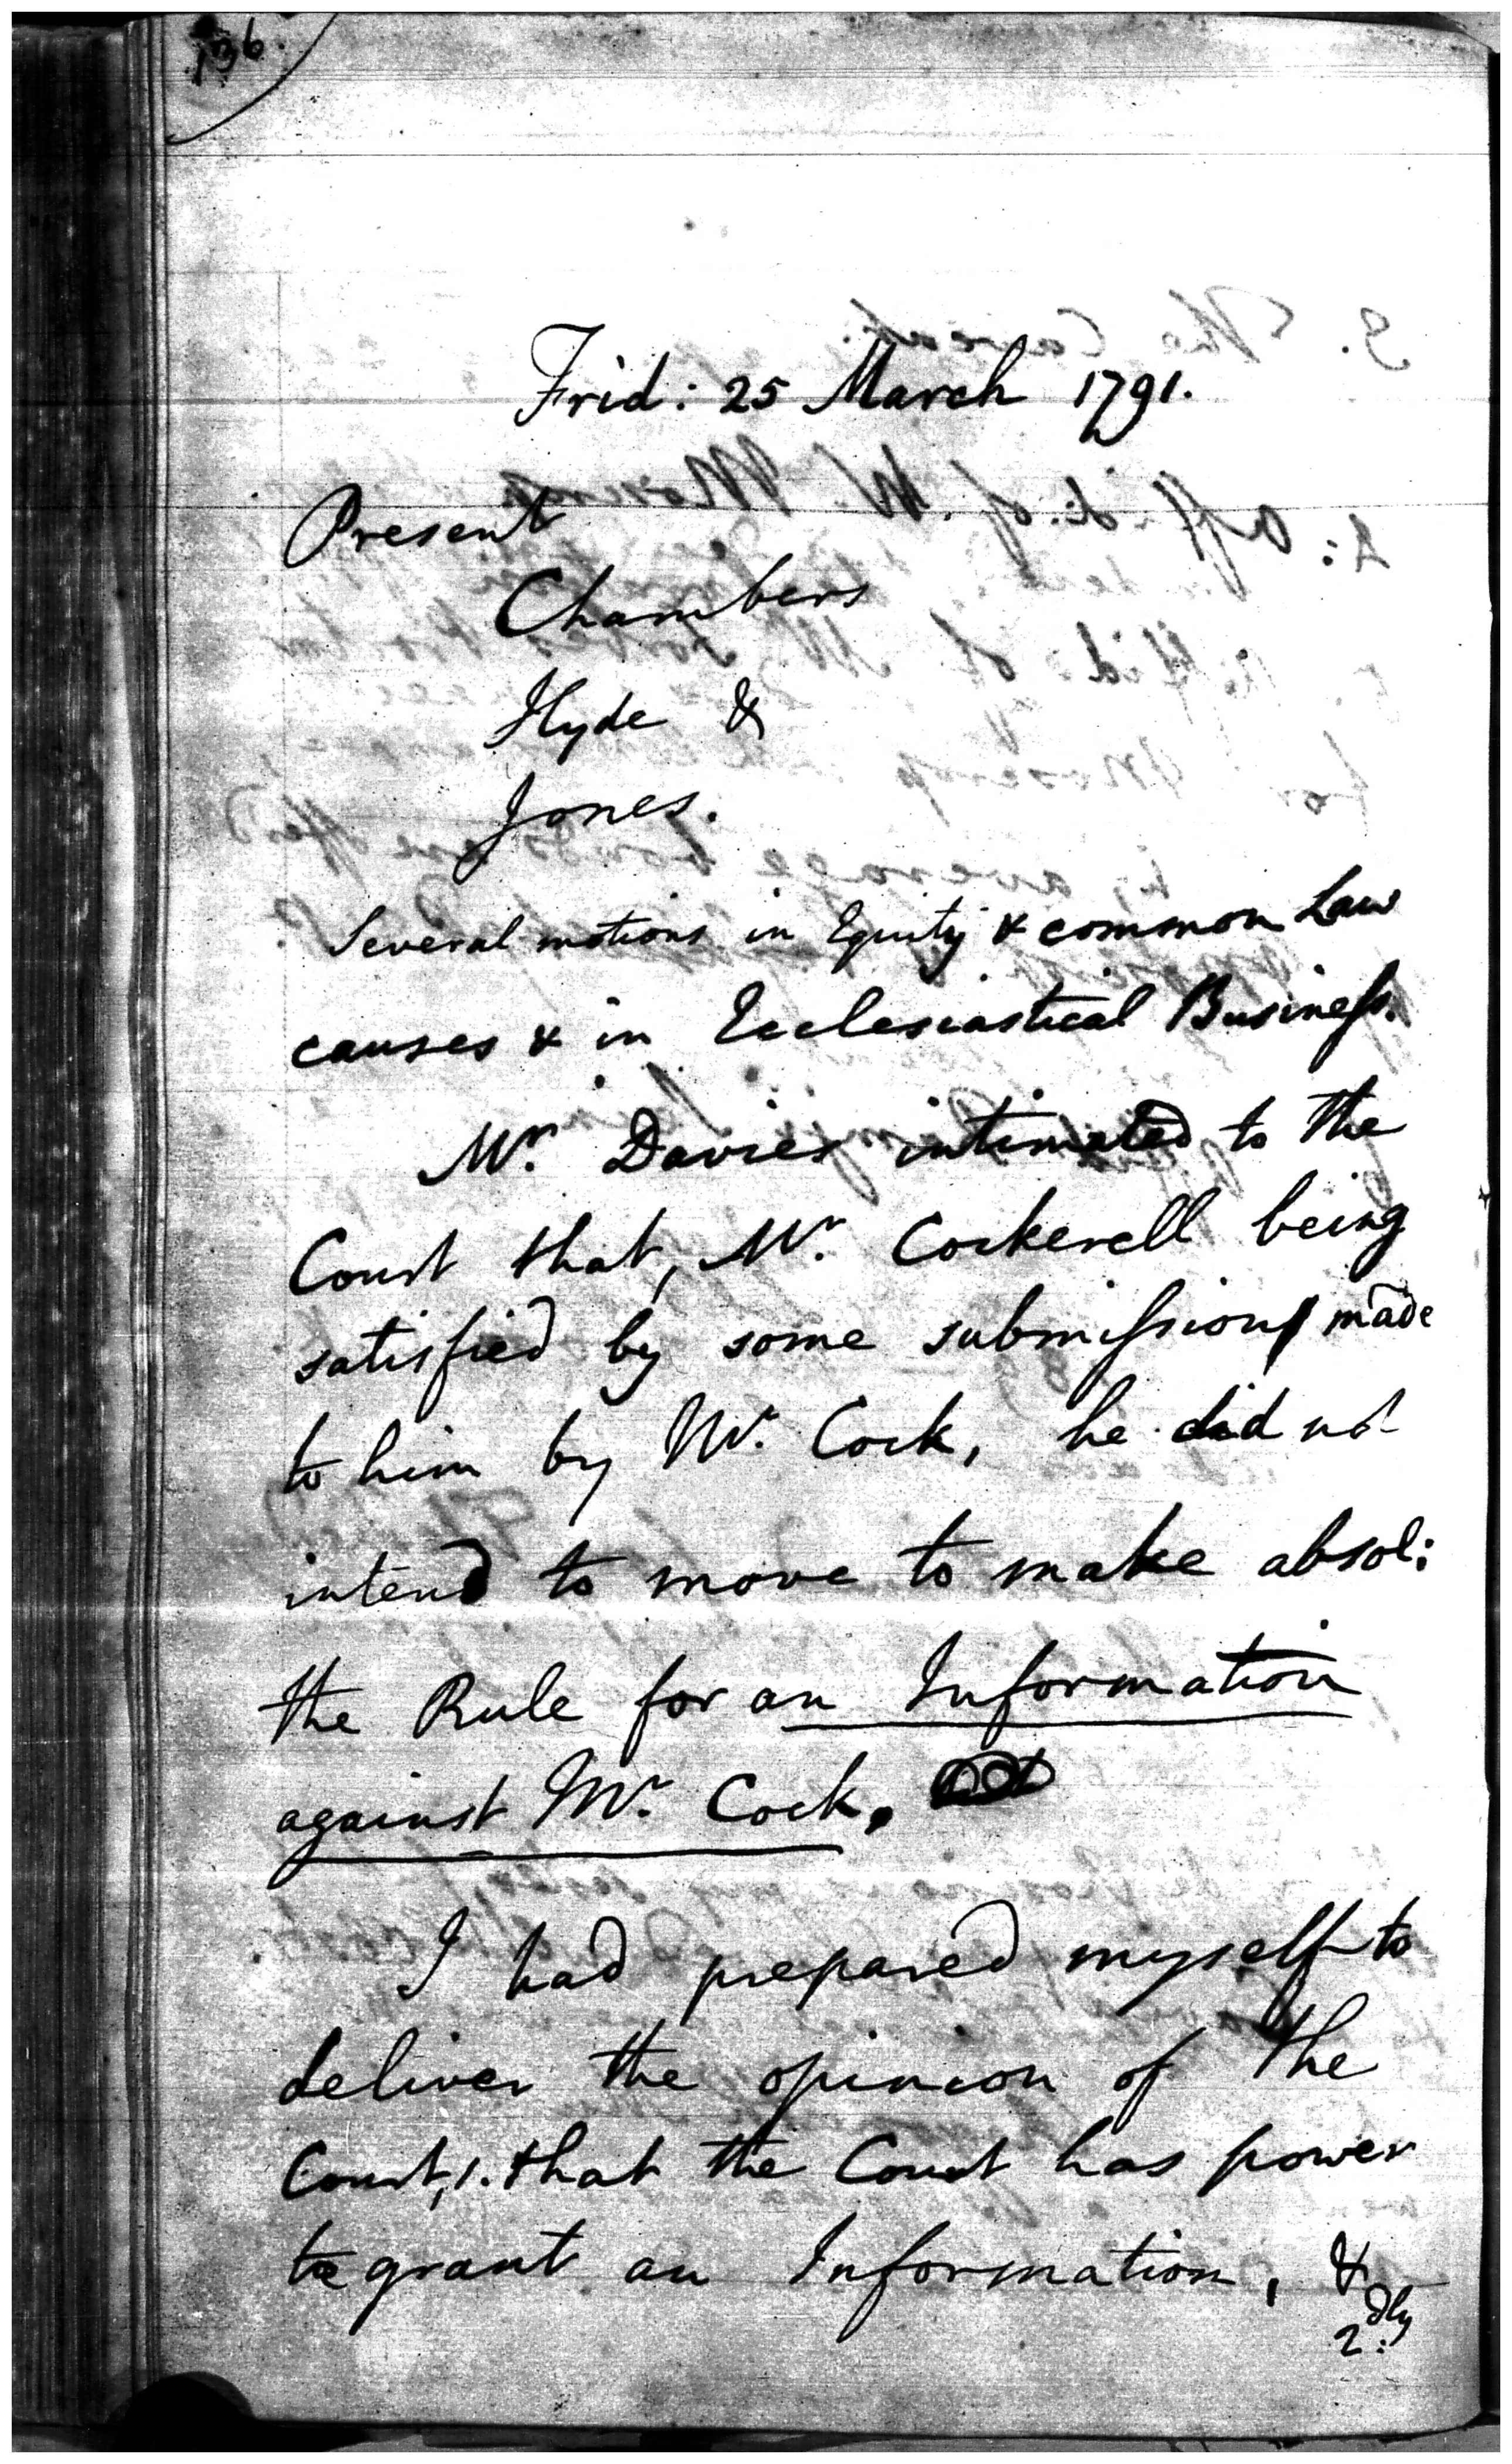 136.
Frid: 25 March 1791.
Present
Chambers
Hyde &
Jones.
Several motions in Equity & common Law
causes & in Ecclesiastical Business.
Mr. Davies intimated to the
Court that, Mr. Cockerell being
satisfied by some submission made
to him by Mr. Cock, he did not
intend to move to make absol:
the Rule for an Information
against Mr. Cock.
I had prepared myself to
deliver the opinion of the
Court, 1. that the Court has power
to grant an Information, &
2dly: